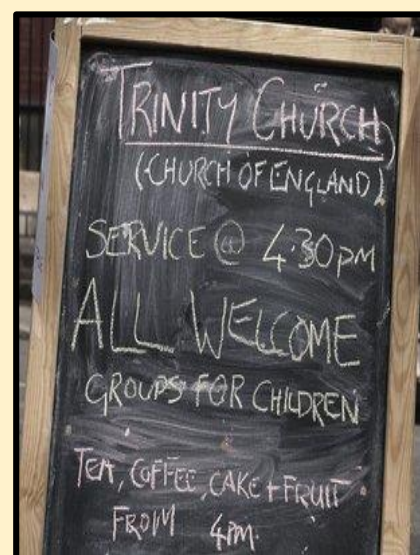 TRINITY CHURCH
(CHURCH OF ENGLAND)
SERVICE @ 4.30PM
ALL WELCOME
GROUPS FOR CHILDREN
TEA, COFFEE, CAKE + FRUIT
FROM 4PM.